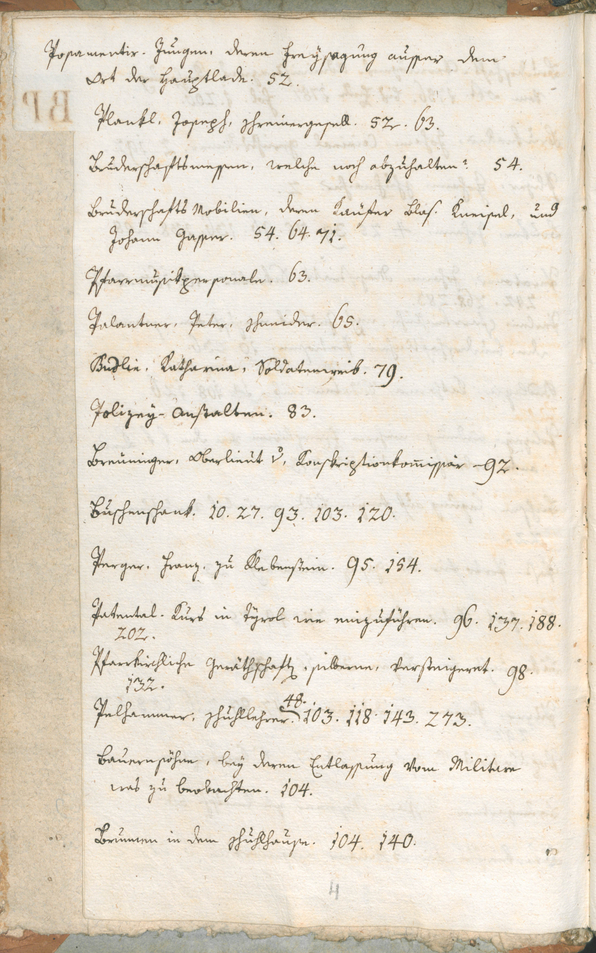 Posamentir. Jungen, deren Freysagung ausser dem
Ort der Hauptlade. 52.
BP
Plankl. Joseph, schreinergesell. 52. 63.
Bruderschaftsmessen, welche noch abzuhalten? 54.
Bruderschafts Mobilien, deren Käufer Blas. Kneisel, und
Johann Gasser. 54. 64. 71.
Pfarrmusikpersonale. 63.
Palantner, Peter, schneider. 65.
Katharina, Soldatenweib. 79.
Polizey-Anstalten. 83.
Breuninger, Oberlieut. Konskriptionskom̄issär 92.
Buschenschank. 10. 27. 93. 103. 120.
Perger, Franz, zu Klebenstein. 95. 154.
Patental-Kurs in Tyrol wie einzuführen. 96. 137. 188.
202.
Pfarrkirchliche Geräthschaft, silberne, versteigeret. 98.
132.
48.
Pelhammer, schullehrer. 103. 118. 143. 273.
Bauernsöhne, bey deren Entlassung vom Militare
was zu beobachten. 104.
Brunnen in dem schulhause. 104. 140.
4